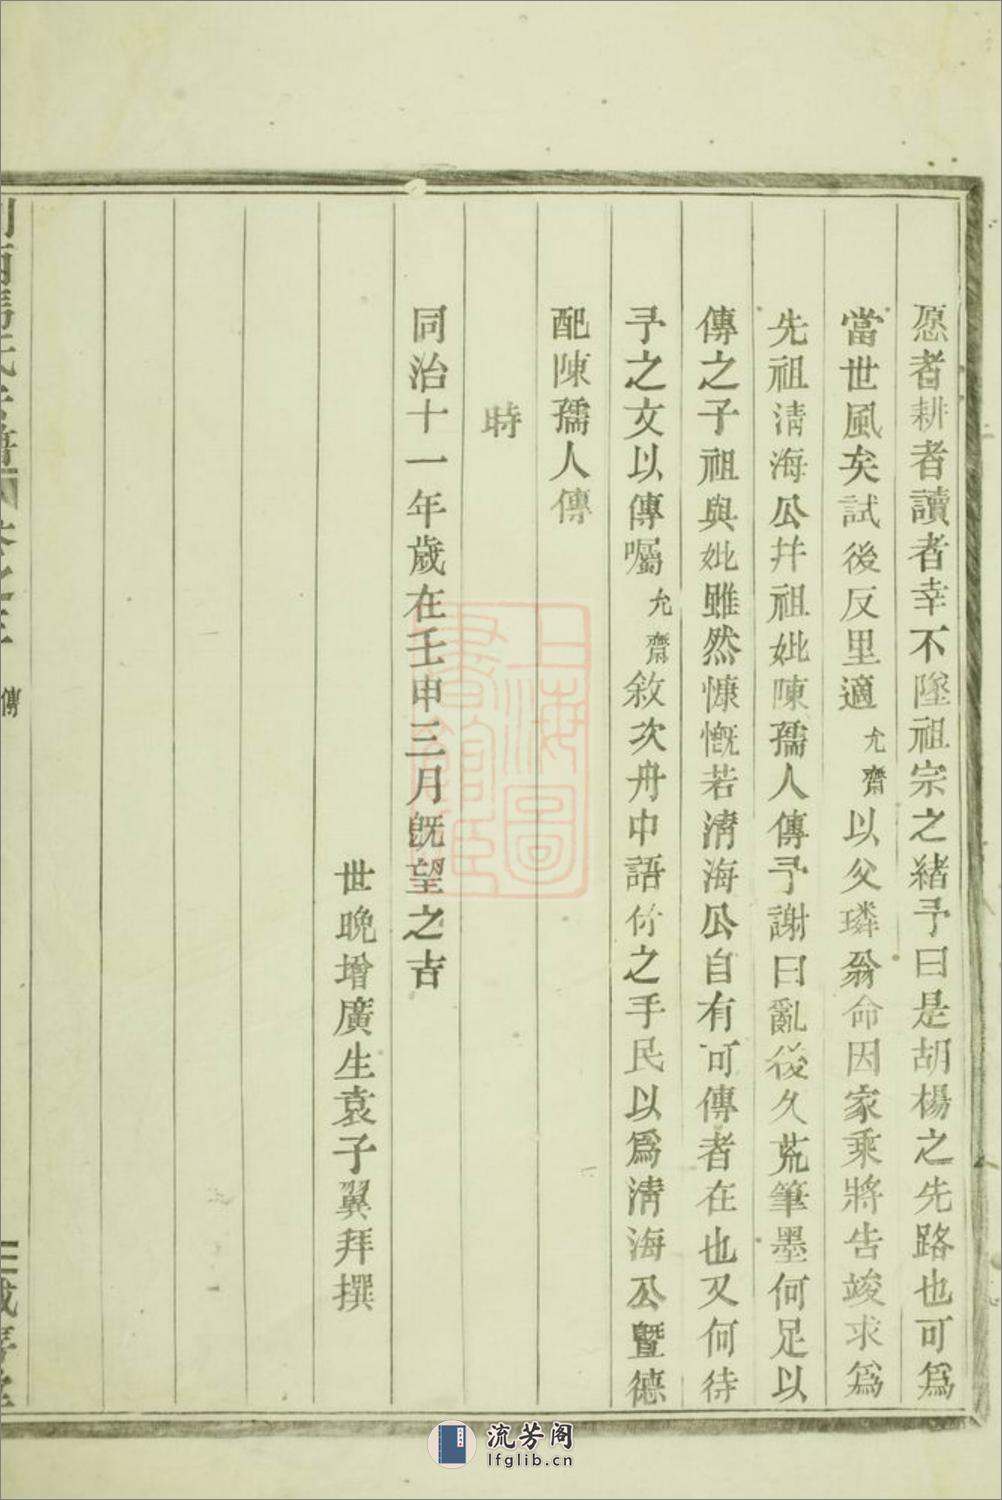 愿者耕者讀者幸不墜祖宗之緒予曰是胡楊之先路也可爲
當世風矣試後反里適允齋以父璘翁命因家乘將告竣求爲
先祖淸海公并祖妣陳孺人傳予謝曰亂後久荒筆墨何足以
傳之子祖與妣雖然慷慨若淸海公自有可傳者在也又何待
予之文以傳囑允齋敘次舟中語付之手民以爲淸海公曁德
配陳孺人傳
時
同治十一年歲在壬申三月旣望之吉
世晚增廣生袁子翼拜撰
傳
上海圖書館藏
流芳阁
lfglib.cn